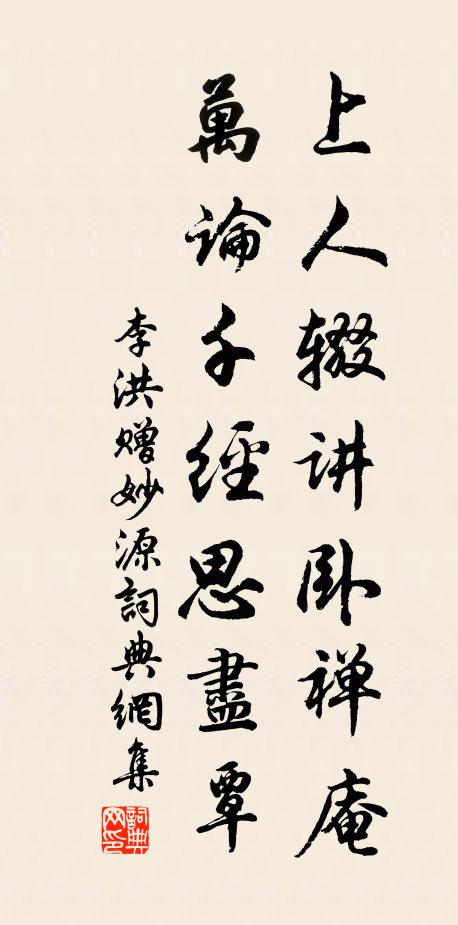 上人辍讲卧禅庵
萬論千經思盡覃
李洪赠妙源詞典網集
詞典网印